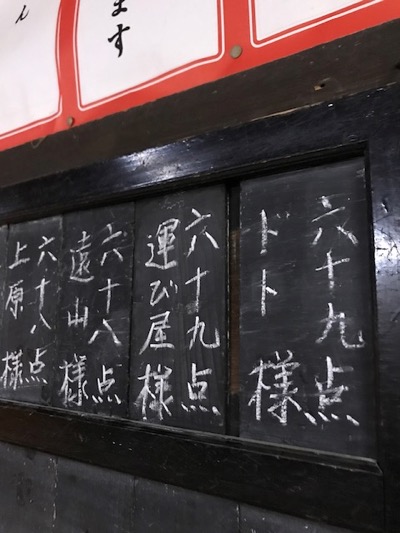 ん
ます
六十九点
ドト 様
六十九点
運び屋様
六十八点
遠山様
六十八点
上原様